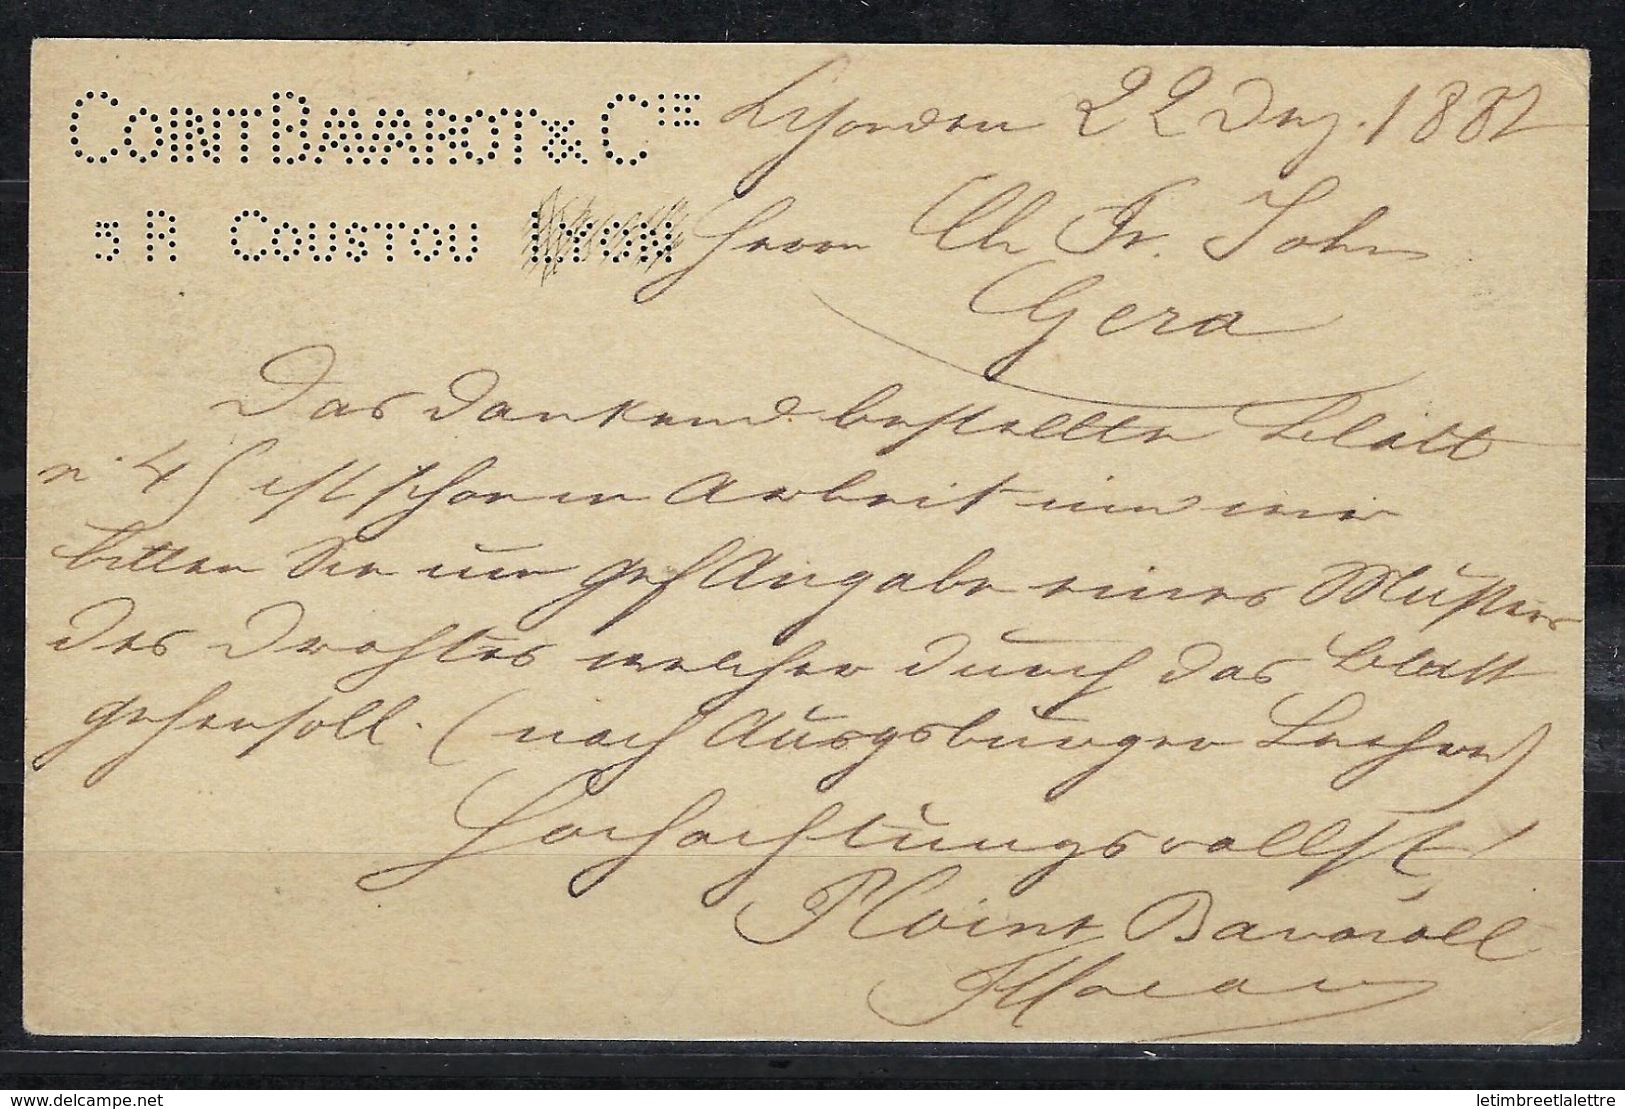 COINT BAVAROT & CIE
5 R COUSTOU LYON
22 Dez. 1887
Herrn Ch Fr. John
Gera
Das dankend bestellte Blatt
n. 45 ist schon in Arbeit und wir
bitten Sie um gef Angabe eines Musters
des Drahtes welcher durch das Blatt
gehen soll. (nach Augsburger Lehre)
Hochachtungsvollst!
Coint Bavarot
letimbreetlalettre